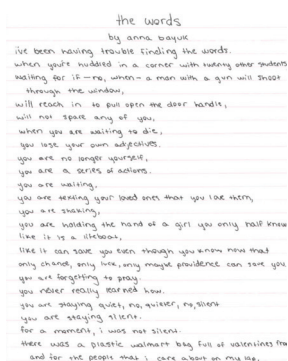 the words
by anna bayuk
ive been having trouble finding the words.
when you're huddled in a corner with twenty other students
waiting for if - no, when - a man with a gun will shoot
through the window,
will reach in to pull open the door handle,
will not spare any of you,
when you are waiting to die,
you lose your own adjectives.
you are no longer yourself,
you are a series of actions.
you are waiting,
you are texting your loved ones that you love them,
you are shaking,
you are holding the hand of a girl you only half know
like it is a lifeboat,
like it can save you even though you know now that
only chance, only luck, only maybe providence can save you
you are forgetting to pray.
you never really learned how.
you are staying quiet, no, quieter, no, silent
you are staying silent.
for a moment, i was not silent.
there was a plastic walmart bag full of valentines
and for the people that i care about on my lap,